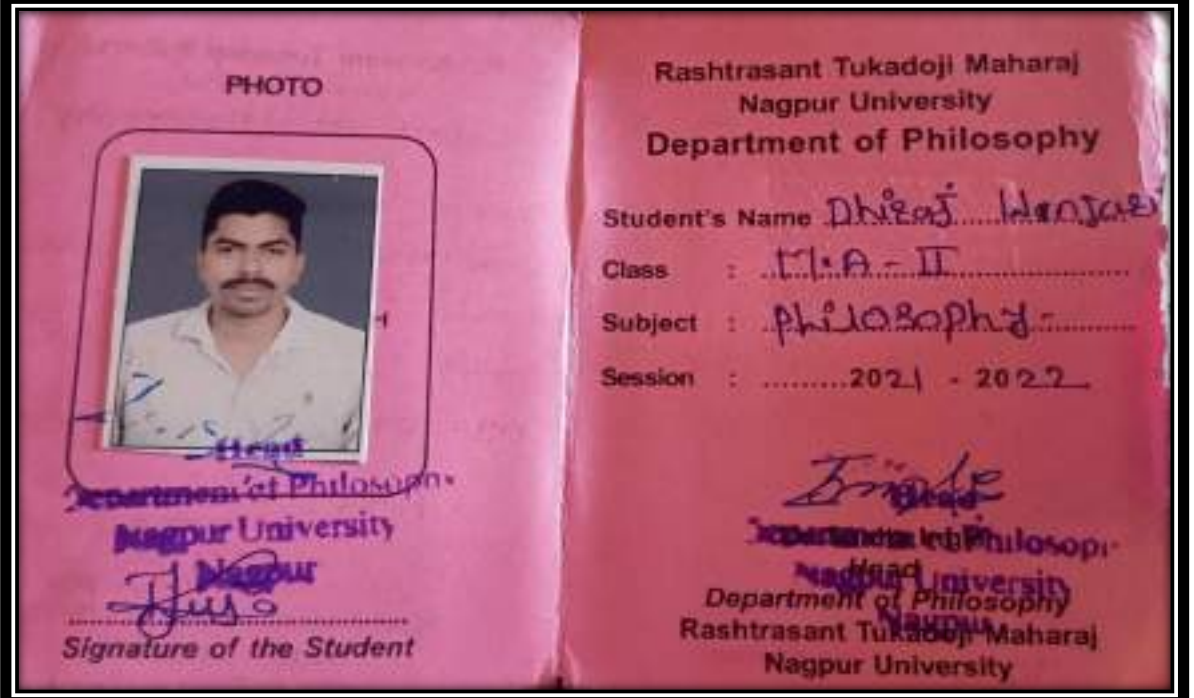 PHOTO
Head
Department of Philosophy
Nagpur University
Nagpur
Signature of the Student
Rashtrasant Tukadoji Maharaj
Nagpur University
Department of Philosophy
Student's Name Dhiraj Wanjari
Class : M.A - II
Subject : Philosophy -
Session : 2021 - 2022
Head
Nagpur University
Nagpur
Head
Department of Philosophy
Rashtrasant Tukadoji Maharaj
Nagpur University